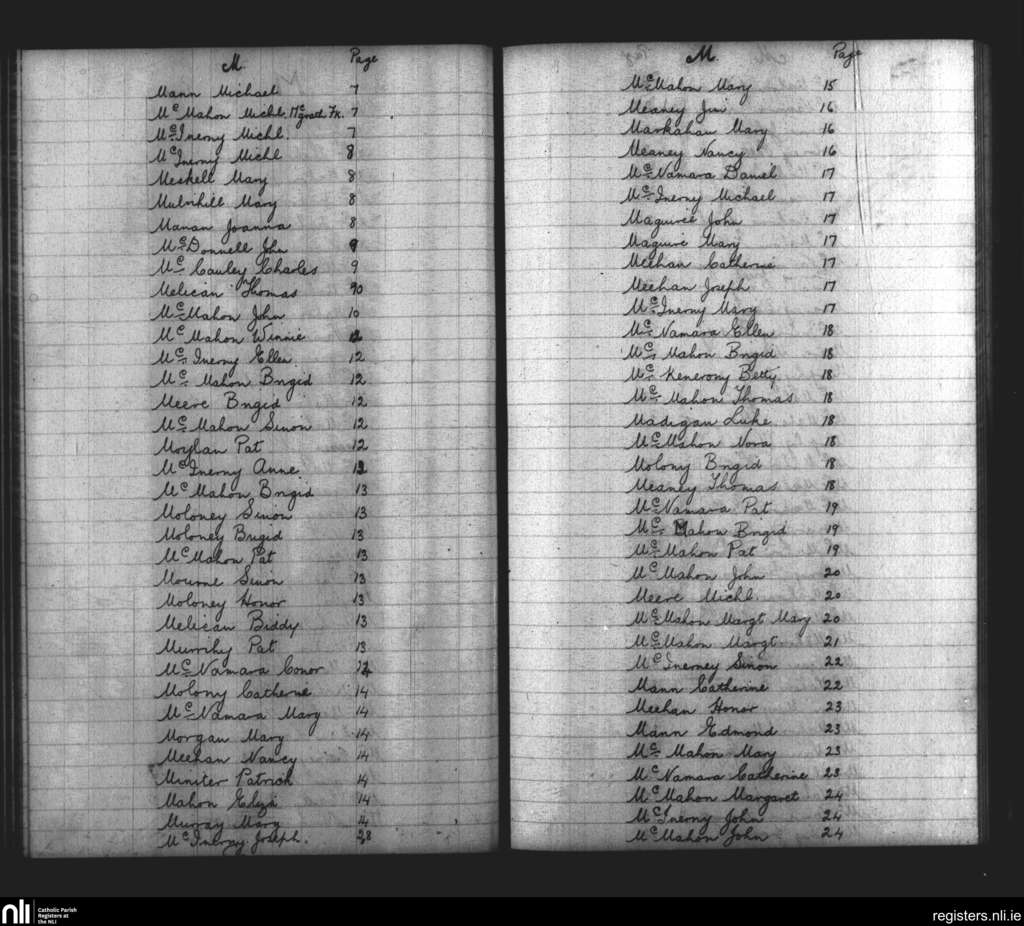 M. Page
Mann Michael 7
McMahon Michl. McGrath Fk. 7
McInerny Michl. 7
McInerny Michl 8
Meskell Mary 8
Mulvihill Mary 8
Manan Joanna 8
McDonnell Jhn 9
McCauley Charles 9
Melican Thomas 10
McMahon John 10
McMahon Winnie 12
McInerny Ellen 12
McMahon Brigid 12
Meere Brigid 12
McMahon Simon 12
Moylan Pat 12
McInerny Anne 13
McMahon Brigid 13
Moloney Simon 13
Moloney Brigid 13
McMahon Pat 13
Mourne Simon 13
Moloney Honor 13
Melican Biddy 13
Murrihy Pat 13
McNamara Conor 14
Molony Catherine 14
McNamara Mary 14
Morgan Mary 14
Meehan Nancy 14
Miniter Patrick 14
Mahon Eliza 14
Murray Mary 14
McInerny Joseph. 28
M. Page
McMahon Mary 15
Meaney Jim 16
Markahan Mary 16
Meaney Nancy 16
McNamara Daniel 17
McInerny Michael 17
Maguire John 17
Maguire Mary 17
Meehan Catherine 17
Meehan Joseph 17
McInerny Mary 17
McNamara Ellen 18
McMahon Brigid 18
McKenerony Betty 18
McMahon Thomas 18
Madigan Luke 18
McMahon Nora 18
Molony Brigid 18
Meaney Thomas 18
McNamara Pat 19
McMahon Brigid 19
McMahon Pat 19
McMahon John 20
Meere Michl. 20
McMahon Margt Mary 20
McMahon Margt 21
McInerney Simon 22
Mann Catherine 22
Meehan Honor 23
Mann Edmond 23
McMahon Mary 23
McNamara Catherine 23
McMahon Margaret 24
McInerny John 24
McMahon John 24
nli Catholic Parish
Registers at
the NLI
registers.nli.ie